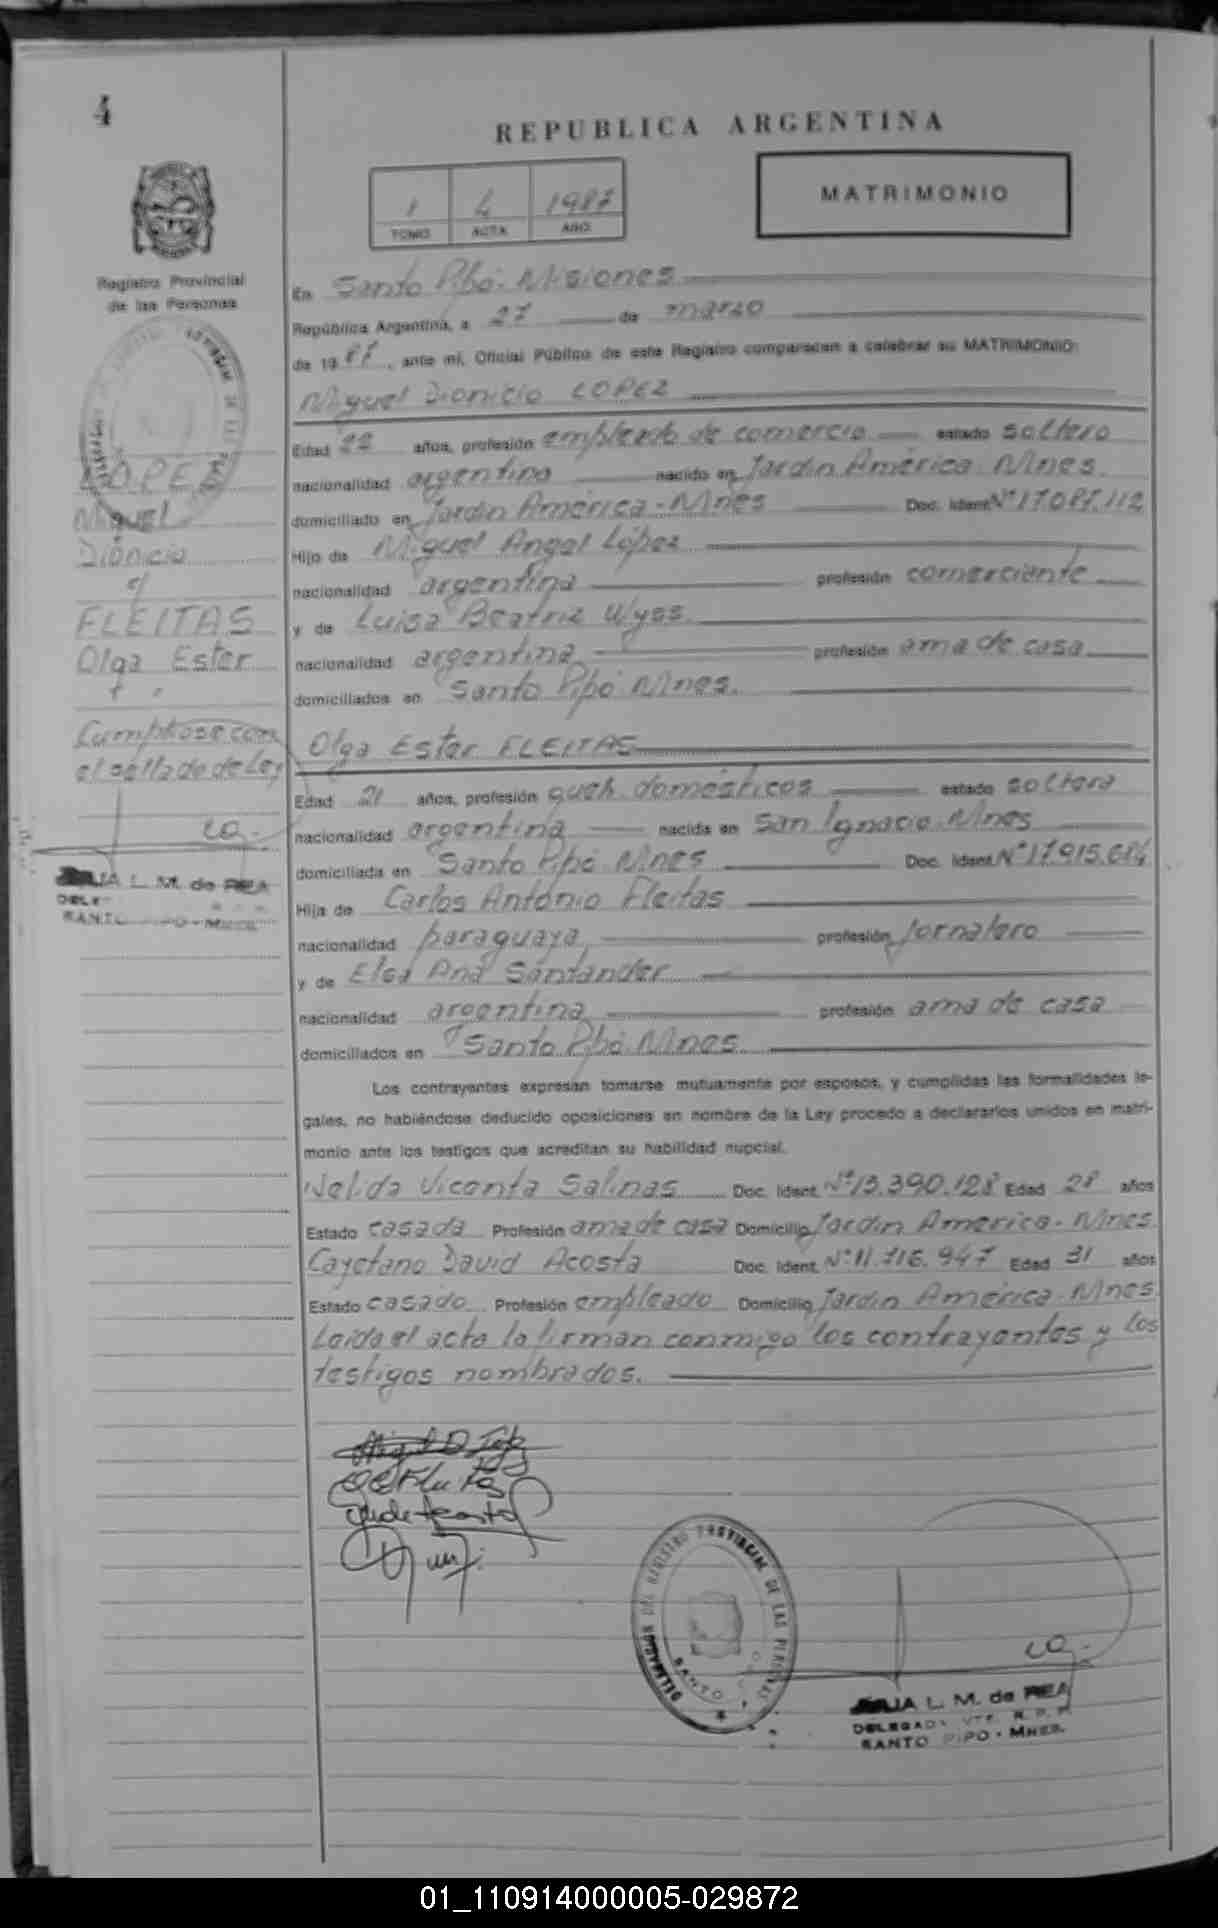 4
REPUBLICA ARGENTINA
1 4 1987
TOMO ACTA AÑO
MATRIMONIO
Registro Provincial
de las Personas
En Santo Pipó - Misiones
República Argentina, a 27 de marzo
de 1987, ante mí, Oficial Público de este Registro comparecen a celebrar su MATRIMONIO:
Miguel Dionicio LOPEZ
Edad 22 años, profesión empleado de comercio estado soltero
nacionalidad argentina nacido en Jardín América Mnes.
domiciliado en Jardín América - Mnes Doc. Ident. Nº 17.087.112
Hijo de Miguel Angel López
nacionalidad argentina profesión comerciante
y de Luisa Beatriz Wyss
nacionalidad argentina profesión ama de casa
domiciliados en Santo Pipó Mnes.
Olga Ester FLEITAS
Edad 21 años, profesión queh. domésticos estado soltera
nacionalidad argentina nacida en San Ignacio Mnes
domiciliada en Santo Pipó Mnes Doc. Ident. Nº 17.915.684
Hija de Carlos Antonio Fleitas
nacionalidad paraguaya profesión jornalero
y de Elsa Ana Santander
nacionalidad argentina profesión ama de casa
domiciliados en Santo Pipó Mnes
Los contrayentes expresan tomarse mutuamente por esposos, y cumplidas las formalidades le-
gales, no habiéndose deducido oposiciones en nombre de la Ley procedo a declararlos unidos en matri-
monio ante los testigos que acreditan su habilidad nupcial.
Nelida Vicenta Salinas Doc. Ident. Nº 13.390.128 Edad 28 años
Estado casada Profesión ama de casa Domicilio Jardín América - Mnes
Cayetano David Acosta Doc. Ident. Nº 11.716.947 Edad 31 años
Estado casado Profesión empleado Domicilio Jardín América - Mnes
Leída el acta la firman conmigo los contrayentes y los
testigos nombrados.
LOPEZ
Miguel
Dionicio
c/
FLEITAS
Olga Ester
Cumplióse con
el sellado de Ley
L. M. de REA
SANTO PIPO - MNES.
DELEGACION DEL REGISTRO PROVINCIAL DE LAS PERSONAS
SANTO PIPO
L. M. de REA
DELEGADA VTE. R. P. P.
SANTO PIPO - MNES.
01_110914000005-029872